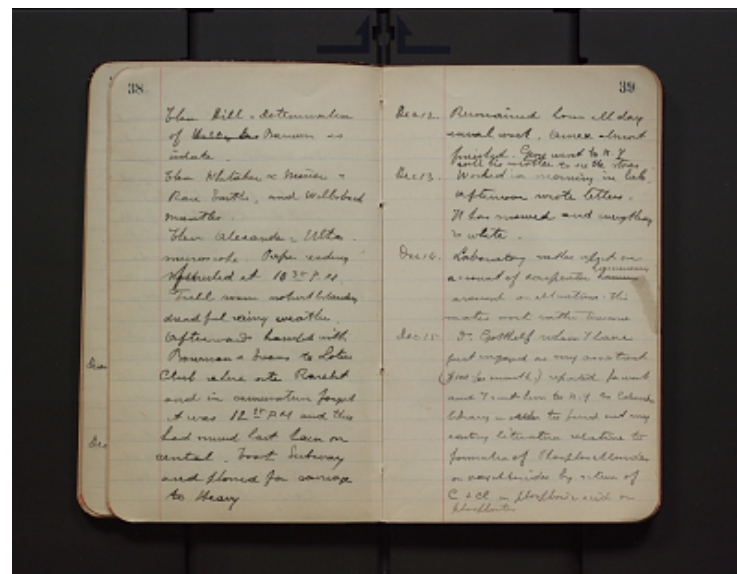 38
Then Hill - Determination
of Barium as
iodate.
Then Whitaker &
Rare Earths, and Welsbach
mantles.
Then Alexander - Ultra
microscope. Paper reading
at 10 30 P.M.
dreadful rainy weather.
Afterwards with
Bowman & Evans to Lotos
Club where ate Rarebit
and in conversation forgot
it was 12 P.M and thus
had missed last train on
central. Took Subway
and phoned for carriage
to Henry
39
Dec 12. Remained home all day
usual work. Annex almost
finished. George went to N.Y
with his mother to see the stores
Dec 13. Worked in morning in lab.
afternoon wrote letters.
It has snowed and everything
is white.
Dec 14. Laboratory rather upset on
account of carpenter
around on alterations. This
makes work rather
Dec 15. Dr Gotthelf whom I have
just engaged as my assistant
($100 per month) reported for work
and I sent him to N.Y. to Columbia
library in order to find out any
existing literature relative to
formation of Phosphorchlorides
or oxychlorides by action of
C & Cl on phosphoric acid or
phosphates